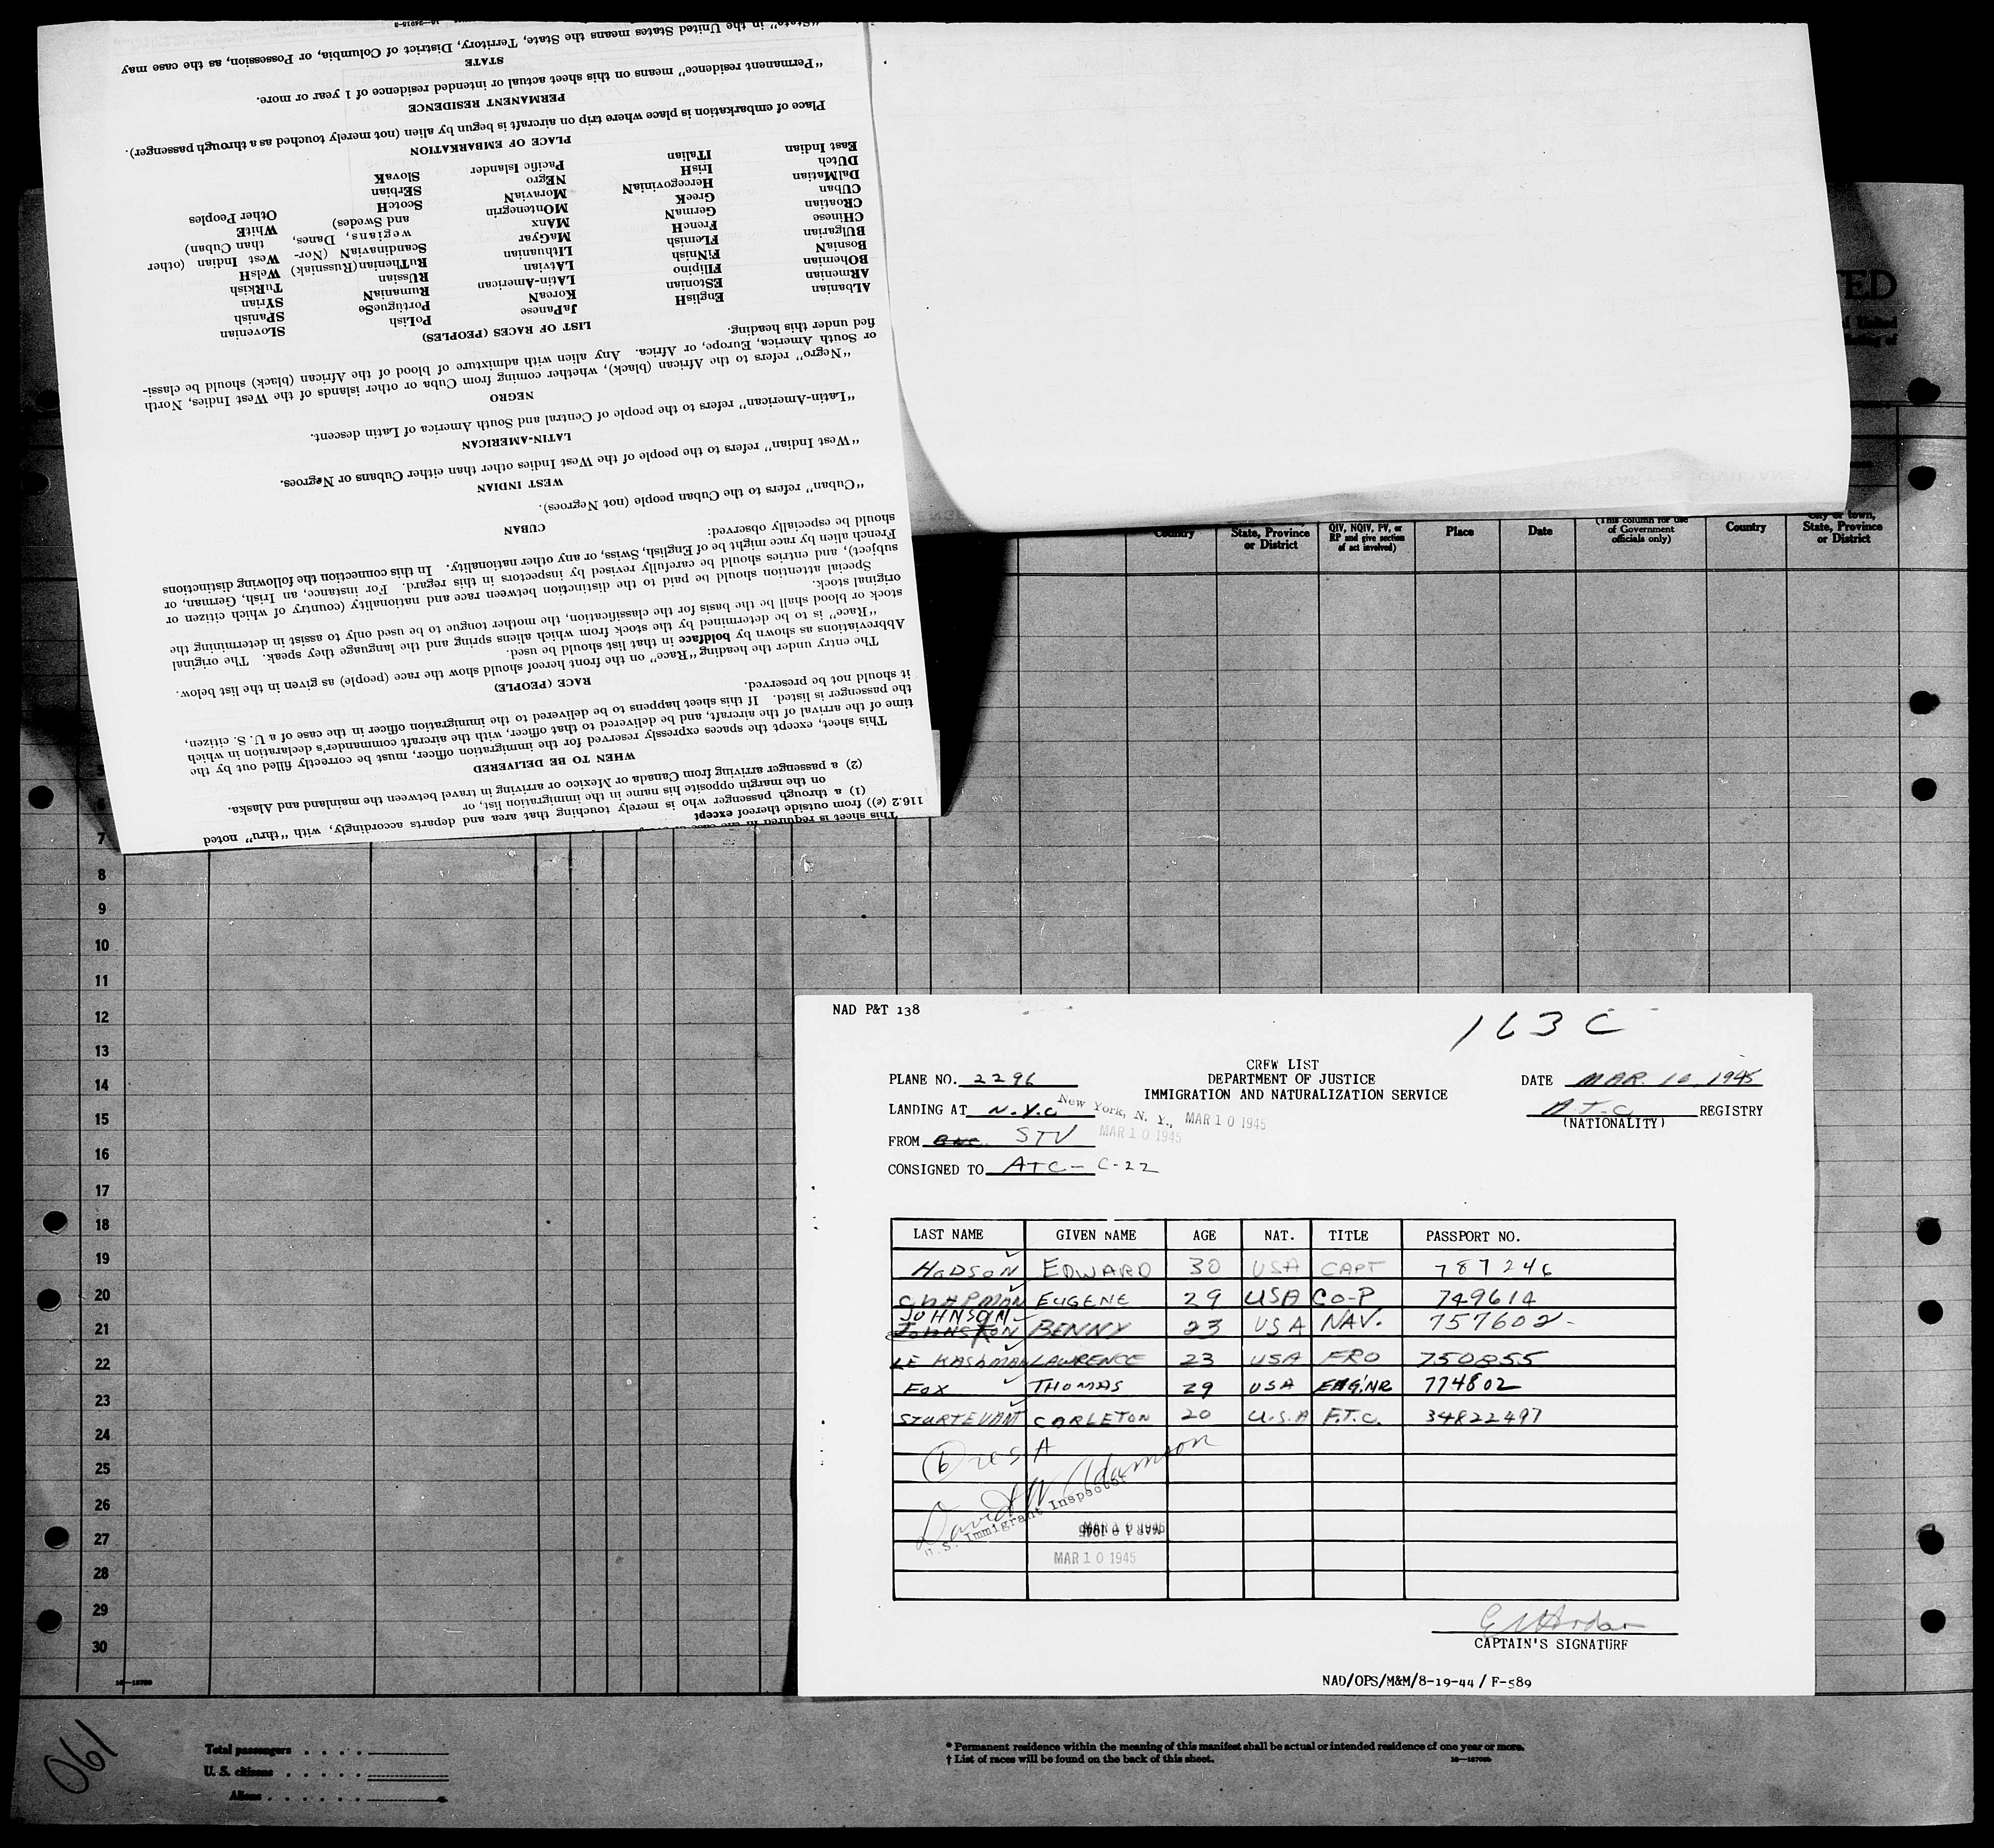 "State" in the United States means the State, Territory, District of Columbia, or Possession, as the case may
STATE
"Permanent residence" means on this sheet actual or intended residence of 1 year or more.
PERMANENT RESIDENCE
Place of embarkation is place where trip on aircraft is begun by alien (not merely touched as a through passenger).
PLACE OF EMBARKATION
East Indian
DUtch
DalMatian
CUban
CRoatian
CHinese
BUlgarian
BosniaN
BOhemian
ARmenian
AlbanIan
ITalian
IrisH
HercegoviniaN
GreeK
GermaN
FrencH
FLemish
FiNnish
FIlipino
EStonian
EnglisH
Pacific Islander
NEgro
MoraviaN
MOntenegrin
MAnx
MaGyar
LIthuanian
LAtvian
LAtin-American
KoreaN
JaPanese
SlovaK
SErbian
ScotcH
ScandinaviaN (Norwegians, Danes, and Swedes)
RuThenian (Russniak)
RUssian
RumaniaN
PortugueSe
PoLish
Other Peoples
WhitE
West Indian (other than Cuban)
WelsH
TuRkish
SYrian
SPanish
SLovenian
LIST OF RACES (PEOPLES)
"Negro" refers to the African (black), whether coming from Cuba or other islands of the West Indies, North
or South America, Europe, or Africa. Any alien with admixture of blood of the African (black) should be classi-
fied under this heading.
NEGRO
"Latin-American" refers to the people of Central and South America of Latin descent.
LATIN-AMERICAN
"West Indian" refers to the people of the West Indies other than either Cubans or Negroes.
WEST INDIAN
"Cuban" refers to the Cuban people (not Negroes).
CUBAN
Special attention should be paid to the distinction between race and nationality (country of which citizen or
subject), and entries should be carefully revised by inspectors in this regard. For instance, an Irish, German, or
French alien by race might be of English, Swiss, or any other nationality. In this connection the following distinctions
should be especially observed:
"Race" is to be determined by the stock from which aliens spring and the language they speak. The original
stock or blood shall be the basis for the classification, the mother tongue to be used only to assist in determining the
original stock.
The entry under the heading "Race" on the front hereof should show the race (people) as given in the list below.
Abbreviations as shown by boldface in that list should be used.
RACE (PEOPLE)
This sheet, except the spaces expressly reserved for the immigration officer, must be correctly filled out by the
time of the arrival of the aircraft, and be delivered to that officer, with the aircraft commander's declaration in which
the passenger is listed. If this sheet happens to be delivered to the immigration officer in the case of a U. S. citizen,
it should not be preserved.
WHEN TO BE DELIVERED
(2) a passenger arriving from Canada or Mexico or arriving in travel between the mainland and Alaska.
(1) a through passenger who is merely touching that area and departs accordingly, with "thru" noted
on the margin opposite his name in the immigration list, or
116.2 (e)) from outside thereof except
This sheet is required in the case of
TED
Country
State, Province
or District
QIV, NQIV, PV, or
RP and give section
of act involved)
Place
Date
(This column for use
of Government
officials only)
Country
City or town,
State, Province
or District
7
8
9
10
11
12
13
14
15
16
17
18
19
20
21
22
23
24
25
26
27
28
29
30
NAD P&T 138
163 C
CREW LIST
DEPARTMENT OF JUSTICE
IMMIGRATION AND NATURALIZATION SERVICE
PLANE NO. 2296
DATE MAR. 10, 1945
LANDING AT N.Y.C
New York, N. Y., MAR 10 1945
MAR 10 1945
A.T.C REGISTRY
(NATIONALITY)
FROM STV
CONSIGNED TO ATC - C-22
LAST NAME GIVEN NAME AGE NAT. TITLE PASSPORT NO.
HODSON EDWARD 30 USA CAPT 787246
CHAPMAN EUGENE 29 USA CO-P 749614
JOHNSON
JOHNSTON BENNY 23 USA NAV. 757602
LE KASHMAN LAWRENCE 23 USA FRO 750855
FOX THOMAS 29 USA ENG'NR 774802
STURTEVANT CARLETON 20 U.S.A F.T.C. 34822497
6 USA
David W Adamson
U.S. Immigrant Inspector
MAR 10 1945
MAR 10 1945
CAPTAIN'S SIGNATURE
NAD/OPS/M&M/8-19-44 / F-589
190
Total passengers
U. S. citizens
Aliens
* Permanent residence within the meaning of this manifest shall be actual or intended residence of one year or more.
† List of races will be found on the back of this sheet.